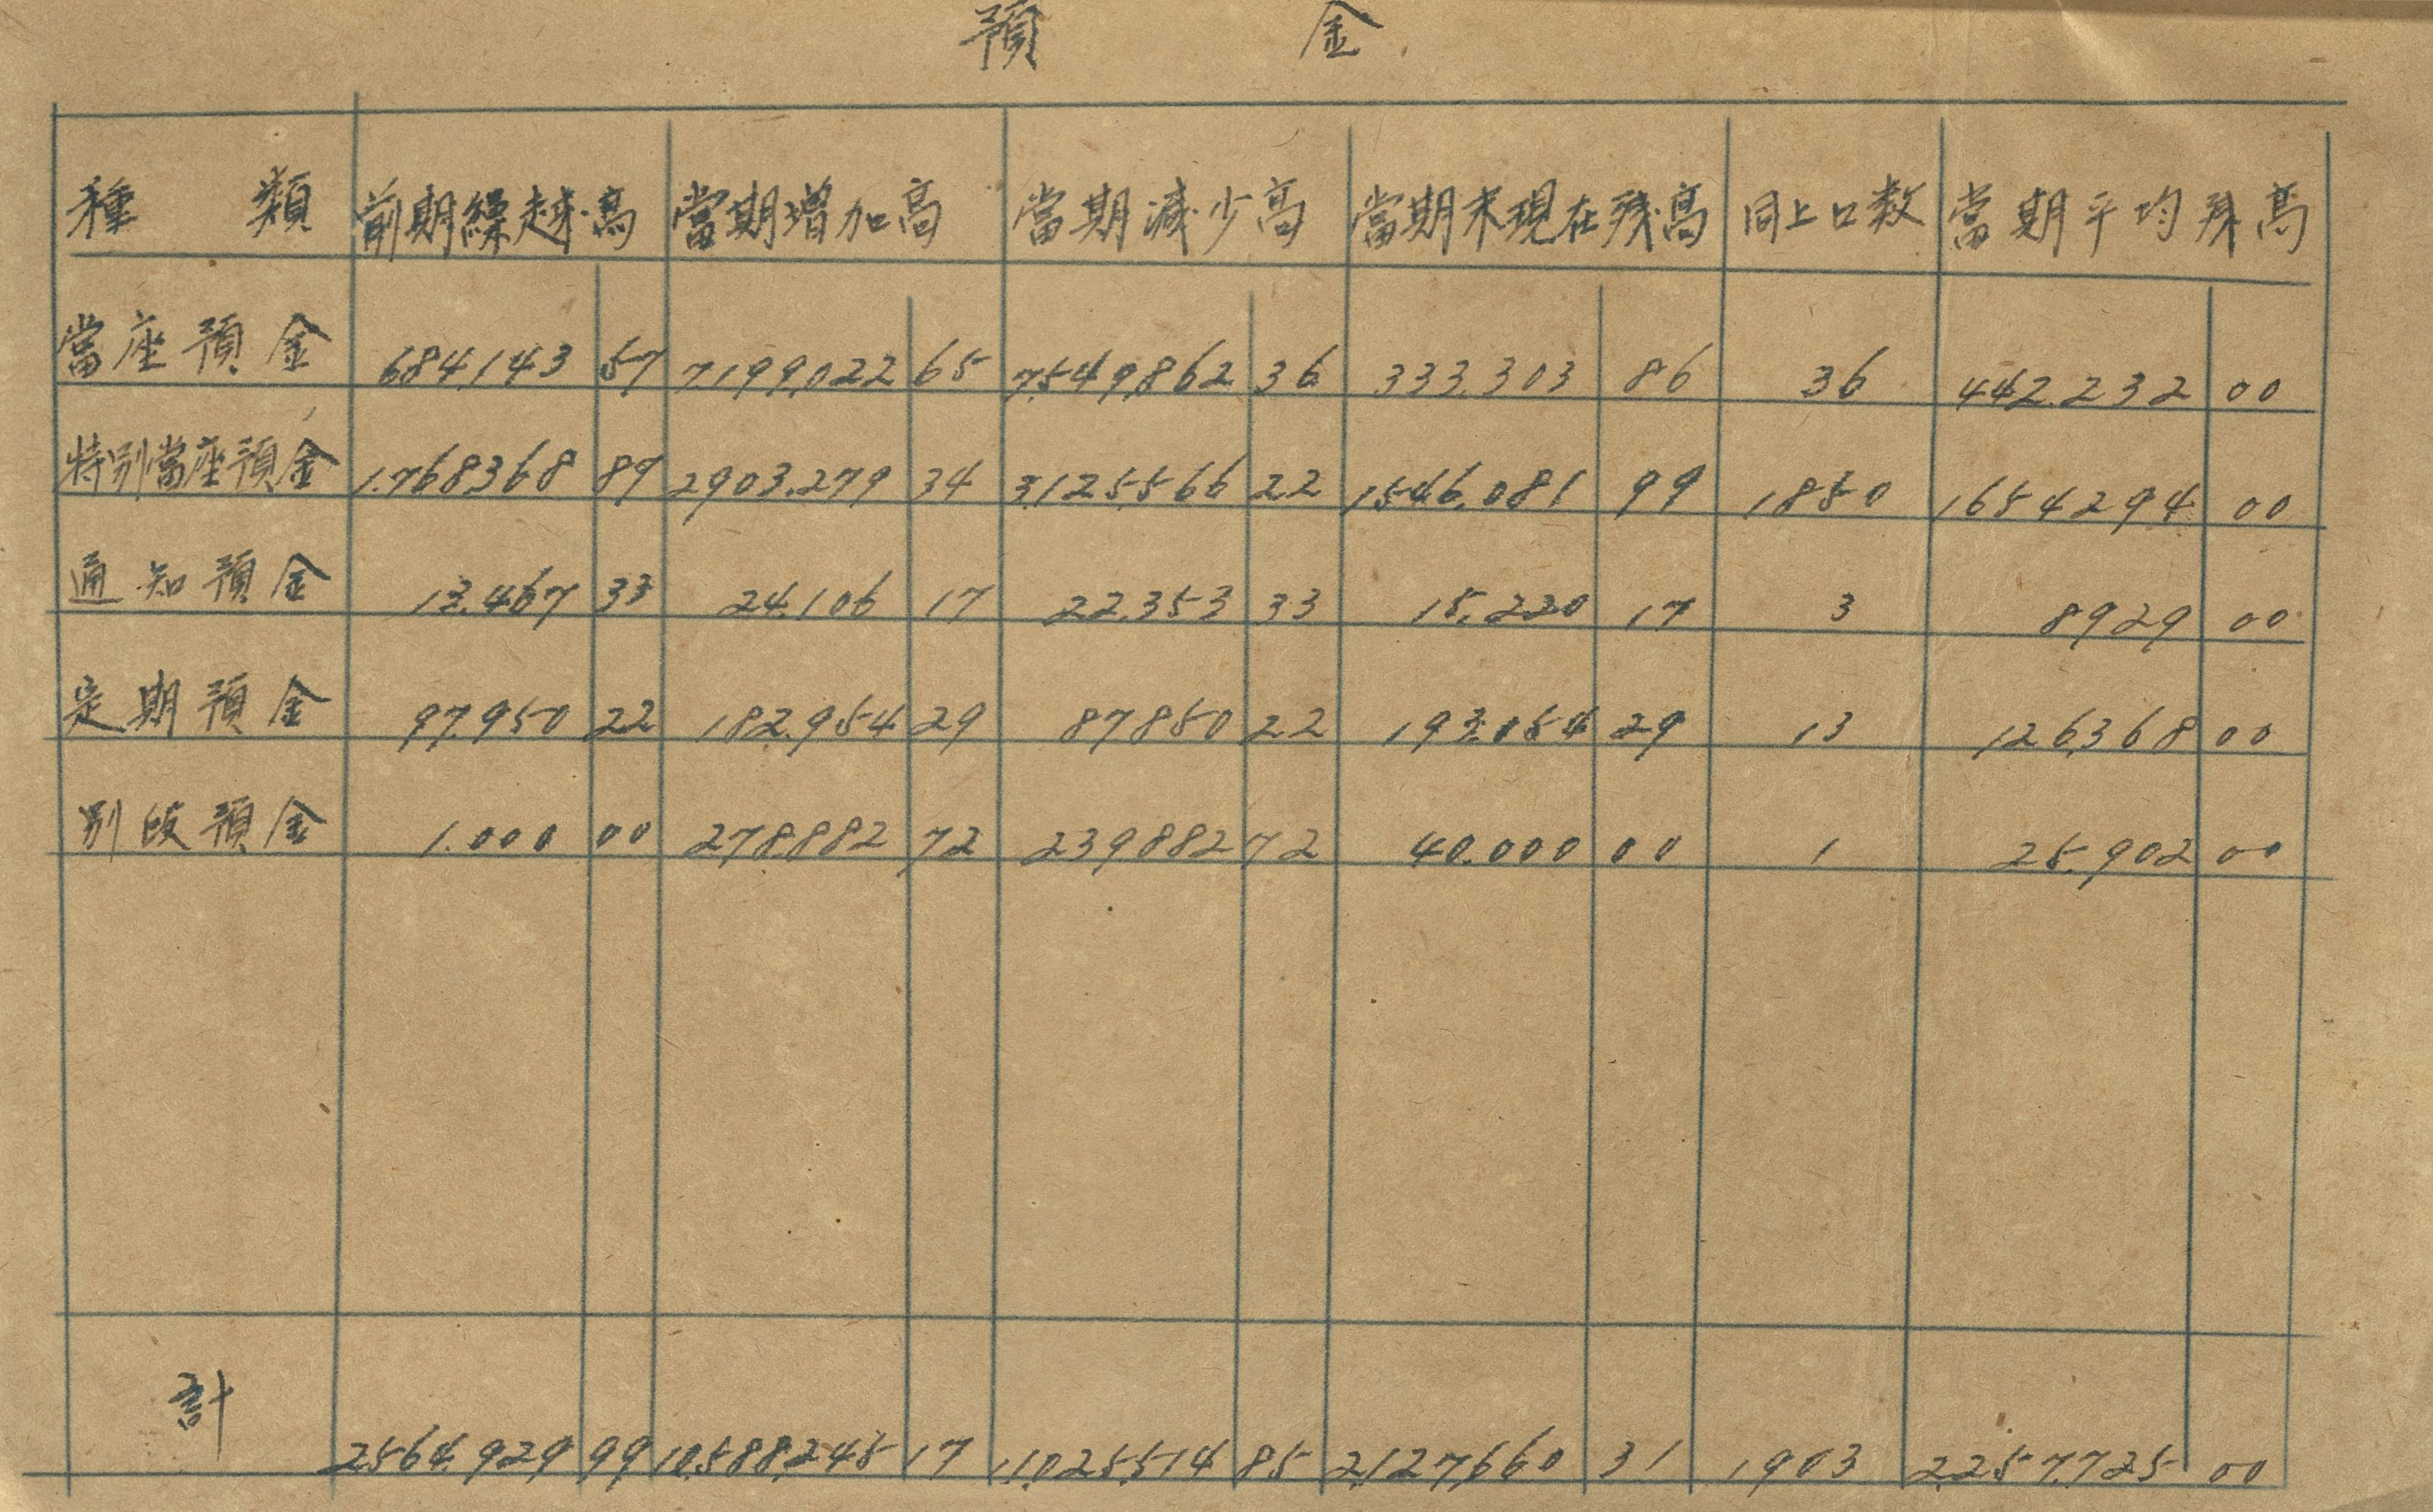 預 金
種 類 前期繰越高 當期增加高 當期減少高 當期末現在残高 同上口数 當期平均残高
當座預金 684,143 57 7,199,022 65 7,549,862 36 333,303 86 36 442,232 00
特別當座預金 1,768,368 87 2,903,279 34 3,125,566 22 1,546,081 99 1850 1654294 00
通知預金 13,467 33 24,106 17 22,353 33 15,220 17 3 8929 00
定期預金 97,950 22 182,954 29 87850 22 193,054 29 13 126,368 00
別段預金 1,000 00 278,882 72 239882 72 40,000 00 1 25,902 00
計 2,564,929 99 10,588,245 17 11,025,514 85 2,127,660 31 1903 2,257,725 00